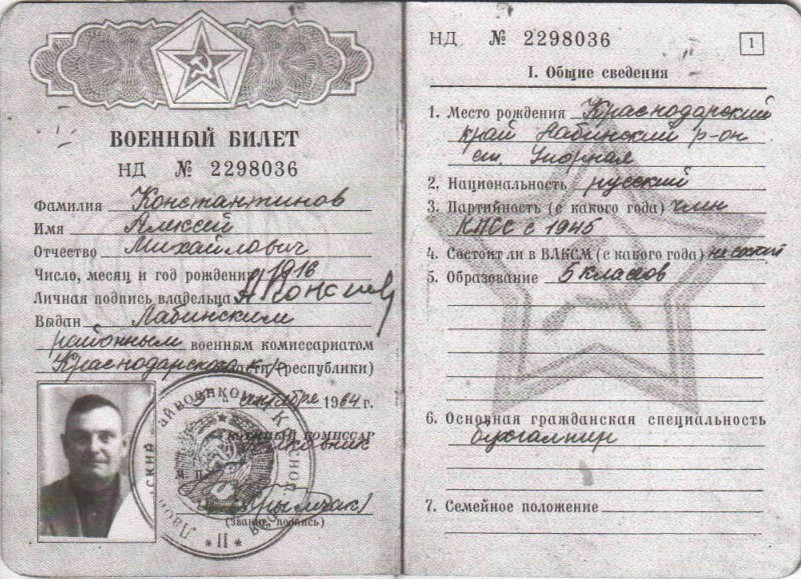 ВОЕННЫЙ БИЛЕТ
НД № 2298036
Фамилия Константинов
Имя Алексей
Отчество Михайлович
Число, месяц и год рождения 1916
Личная подпись владельца
Выдан Лабинским
районным военным комиссариатом
Краснодарского области (республики)
октября 1964 г.
ВОЕННЫЙ КОМИССАР
М. П.
(Крымчак)
(звание, подпись)
НД № 2298036
1
I. Общие сведения
1. Место рождения Краснодарский
край Лабинский р-он
ст. Упорная
2. Национальность русский
3. Партийность (с какого года) член
КПСС с 1945
4. Состоит ли в ВЛКСМ (с какого года) не состоит
5. Образование 5 классов
6. Основная гражданская специальность
бухгалтер
7. Семейное положение